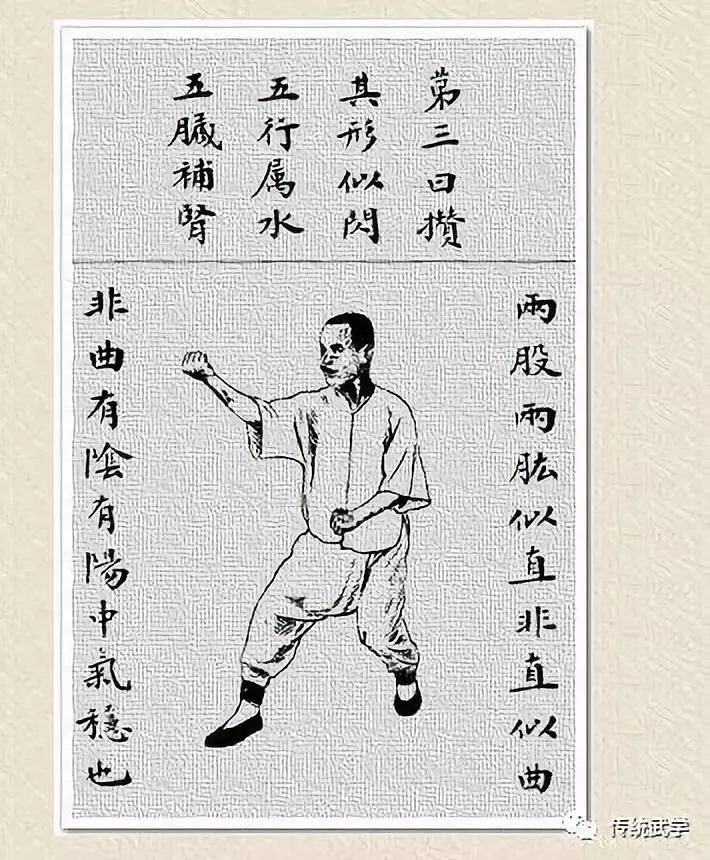 第三曰攢
其形似閃
五行属水
五臟補腎
兩股兩肱似直非直似曲
非曲有陰有陽中氣穩也
传统武学